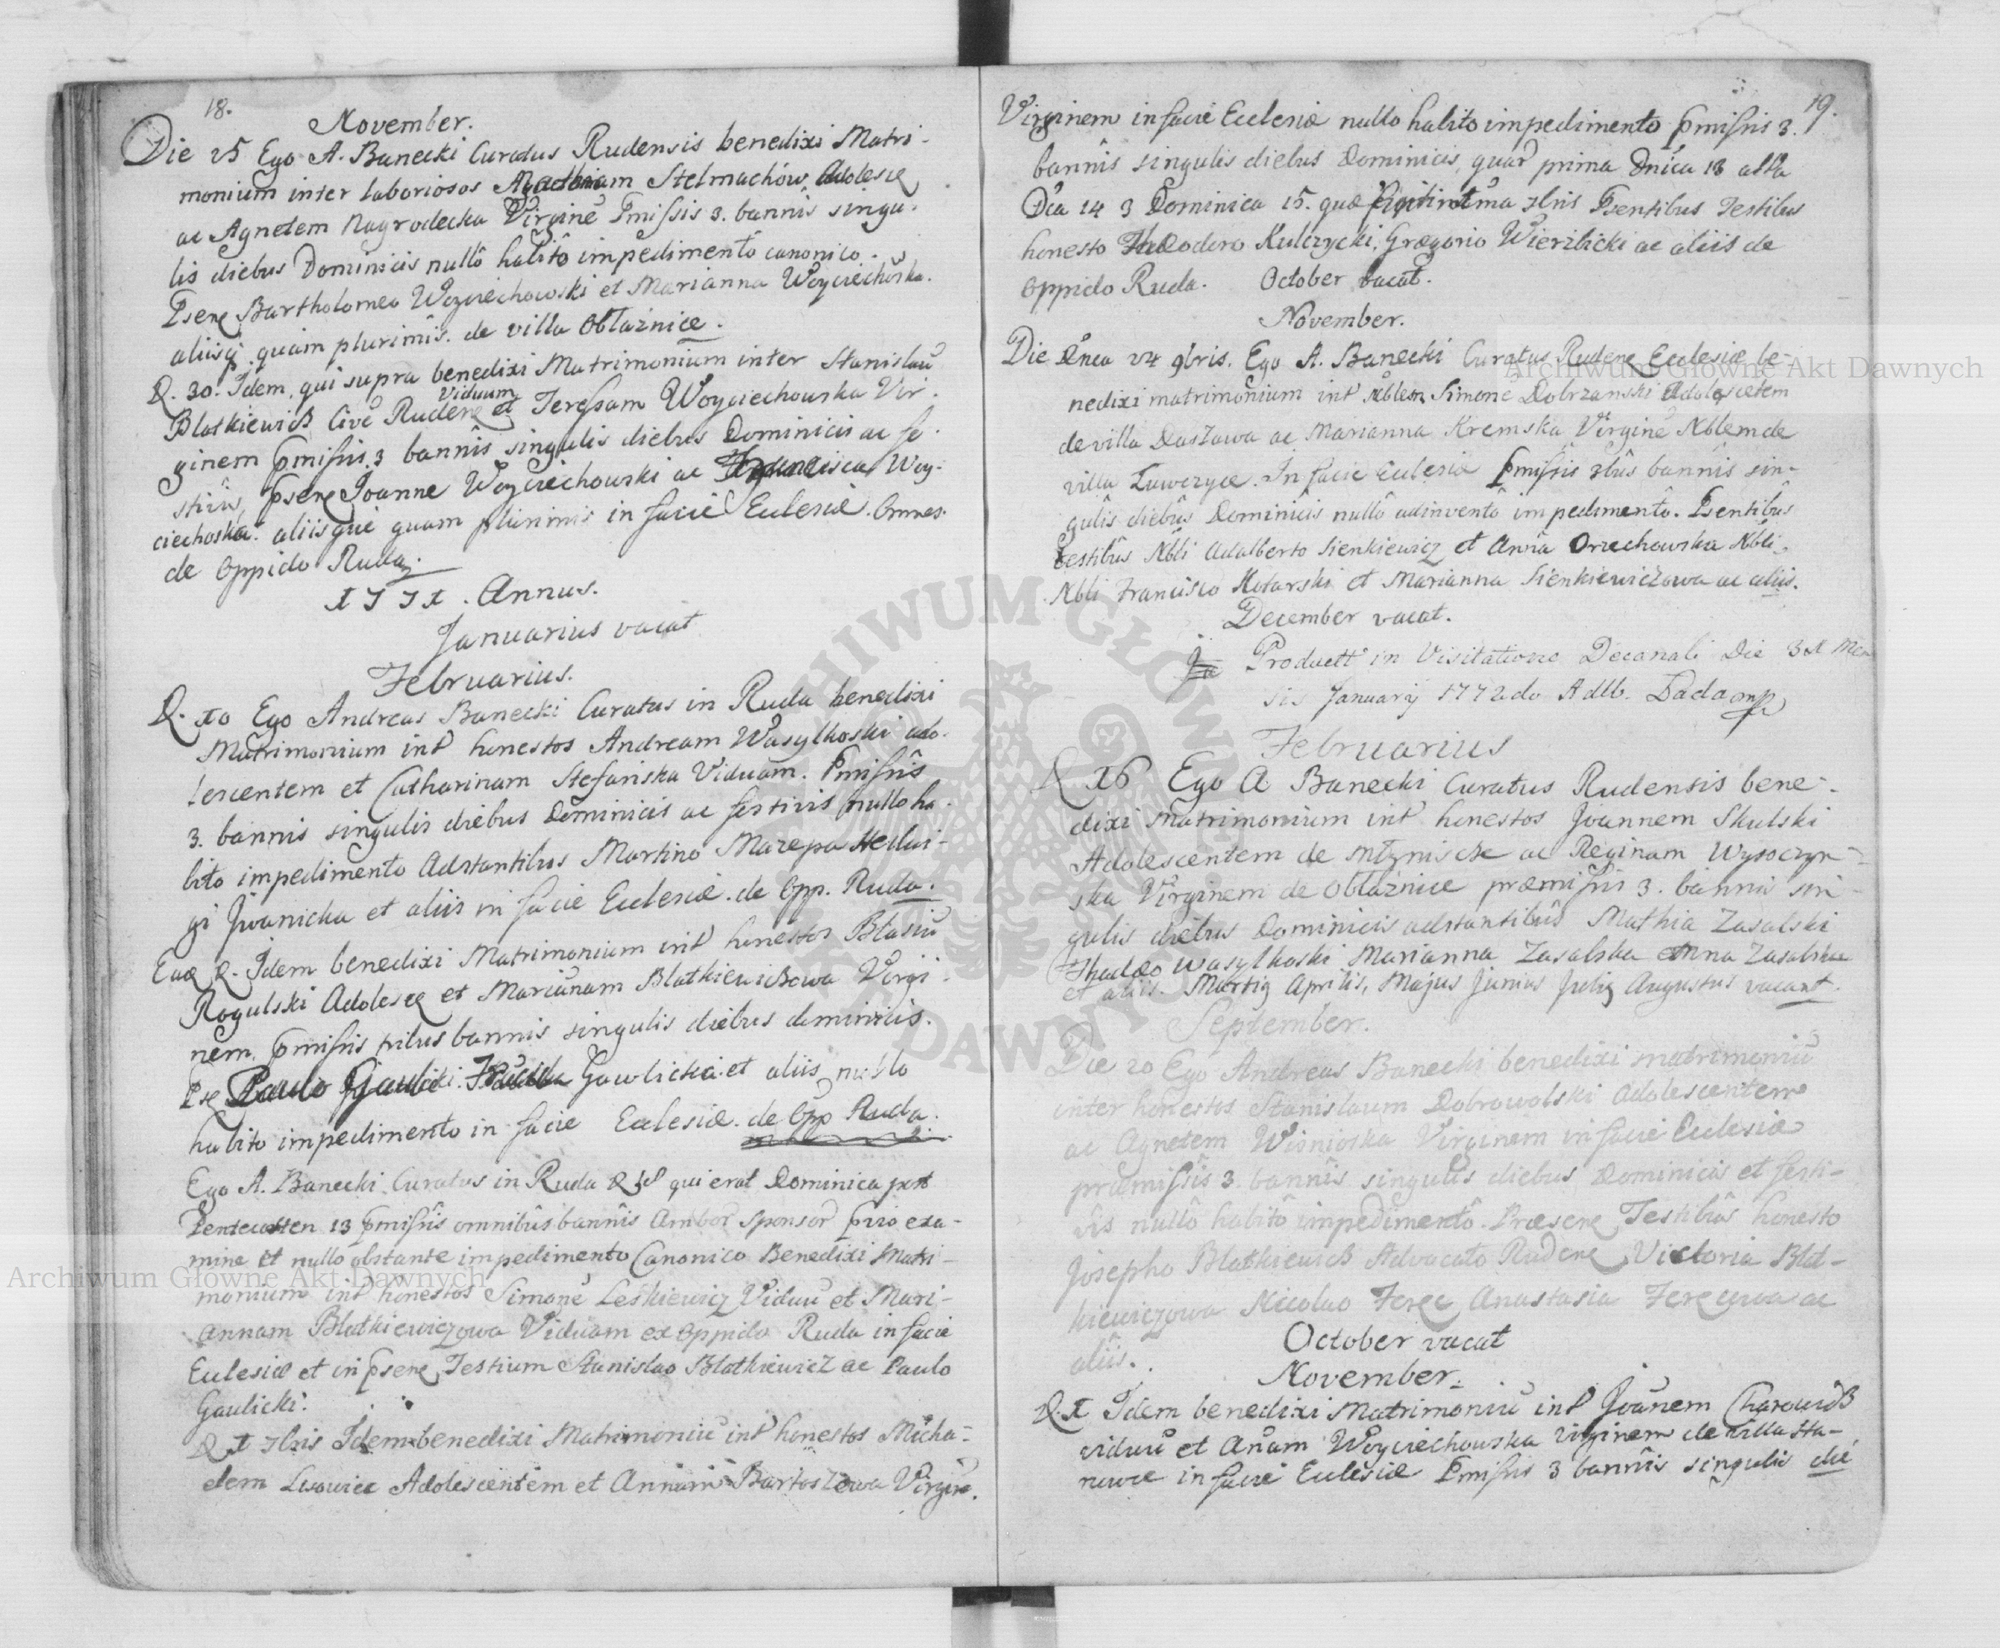 18.
November.
Die 25 Ego A. Banecki Curatus Rudensis benedixi Matri-
monium inter laboriosos Stelmachów Adolesc
ac Agnetem Nagrodecka Virginē Pmissis 3. bannis singu-
lis diebus Dominicis nullô habitô impedimentô canonico.
Psene Bartholomeo Woyciechowski et Marianna Woyciechoska.
aliisq quam plurimis. de villa Obłaznice.
D. 30. Idem, qui supra benedixi Matrimonium inter Stanislaū
viduum
Blotkiewicß Civē Rudene et Teressam Woyciechowska Vir-
ginem Pmissis 3 bannis singulis diebus Dominicis ac fe-
stivis, psene Joanne Woyciechowski ac Francisca Woy-
ciechoska. aliisque quam plurimis in facie Ecclesiæ. Omnes.
de Oppido Ruda.
1771. Annus.
Januarius vacat
Februarius.
D. 10 Ego Andreas Banecki Curatus in Ruda benedixi
Matrimonium int honestos Andream Wasylkoski ado-
lescentem et Catharinam Stefańska Viduam. Pmissis
3. bannis singulis diebus Dominicis ac festivis nullo ha-
bito impedimento Adstantibus Martino Mazepa Hedvi-
gi Jwanicka et aliis in facie Ecclesiæ. de Opp. Ruda.
Eade D. Idem benedixi Matrimonium int honestos Blasiū
Rogulski Adolesc et Mariānam Blotkiewicßowa Virgi-
nem. Pmissis tribus bannis singulis diebus dominicis.
Pse Paulo Gaulicki Gawlicka et aliis nullo
habito impedimento in facie Ecclesiæ. de Opp Ruda.
Ego A. Banecki Curatus in Ruda D qui erat Dominica post
Pentecosten 13 Pmissis omnibûs bannis Ambor Sponsor pvio exa-
mine et nullo obstante impedimento Canonico Benedixi Matri-
monium int honestos Simonē Leskiewicz Viduū et Mari-
annam Blotkiewiczowa Viduam ex Oppido Ruda in facie
Ecclesiæ et in psene Testium Stanislao Blotkiewicz ac Paulo
Gaulicki.
D 1 7bris Idem benedixi Matrimoniū int honestos Micha-
elem Lisowicz Adolescentem et Annam Bartoszowa Virginē.
19.
Virginem in facie Ecclesiæ nullo habito impedimento Pmissis 3.
bannis singulis diebus Dominicis, quar prima Dnica 13 altâ
Dca 14 3 Dominica 15. quæ 7bris Psentibus Testibus
honesto Theodoro Kulczycki, Gregorio Wierzbicki ac aliis de
Oppido Ruda. October vacat.
November.
Die Dnca 24 9bris. Ego A. Banecki Curatus Rudene Ecclesiæ be-
nedixi matrimonium int Nblem Simonē Dobrzanski Adolescetem
de villa Daszawa ac Marianna Kremska Virginē Nblem de
villa Ławczyce. In facie Ecclesiæ Pmissis 3bûs bannis sin-
gulis diebûs Dominicis nullô adinventô impedimentô. Psentibûs
testibûs Nbli Adalberto Sienkiewicz et Anna Orzechowska Nbli.
Nbli Francisco Kotarski et Marianna Sienkiewiczowa ac aliis.
December vacat.
Product in Visitatione Decanali Die 31 Men
sis January 1772do Adlb. Dada mp
Februarius
D 16 Ego A Banecki Curatus Rudensis bene-
dixi Matrimonium int honestos Joannem Skulski
Adolescentem de Młyniscze ac Reginam Wysoczyn-
ska Virginem de Obłaznice præmissis 3. bannis sin-
gulis diebus Dominicis adstantibûs Mathia Zasalski
Thadeo Wasylkoski Marianna Zasalska Anna Zasalska
et aliis. Martiq Aprilis, Majus Junius Juliq Augustus vacant.
September.
Die 20 Ego Andreas Banecki benedixi matrimoniū
inter honestos Stanislaum Dobrowolski Adolescentem
ac Agnetem Wisnioska Virginem in facie Ecclesiæ
præmissis 3. bannis singulis diebus Dominicis et festi-
vis nullô habitô impedimentô. Præsene Testibûs honesto
Josepho Blotkiewicß Advocato Rudene Victoria Blot-
kiewiczowa Nicolao Ferec Anastasia Ferecowa ac
aliis.
October vacat
November.
D. 1 Idem benedixi Matrimoniū int Joānem Charowicß
viduū et Anam Woyciechowska virginem de villa Sta-
nowce in facie Ecclesiæ Pmissis 3 bannis singulis die
Archiwum Główne Akt Dawnych
Archiwum Główne Akt Dawnych
ARCHIWUM GŁÓWNE AKT DAWNYCH